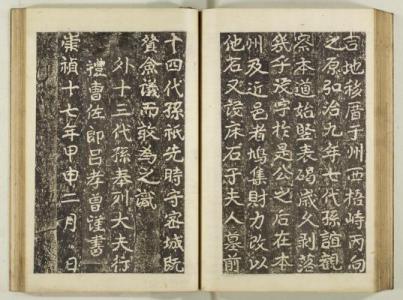 吉地移厝于州西梧峙丙向
之原弘治九年七代孫誼觀
察本道始竪表碣歲久剥落
幾乎沒字於是公之后在本
州及近邑者鳩集財力改以
他石又設床石于夫人墓前
十四代孫祇先時守密城既
賛僉議而敬為之識
外十三代孫奉列大夫行
禮曹佐郎吕孝曽謹書
崇禎十七年甲申二月 日